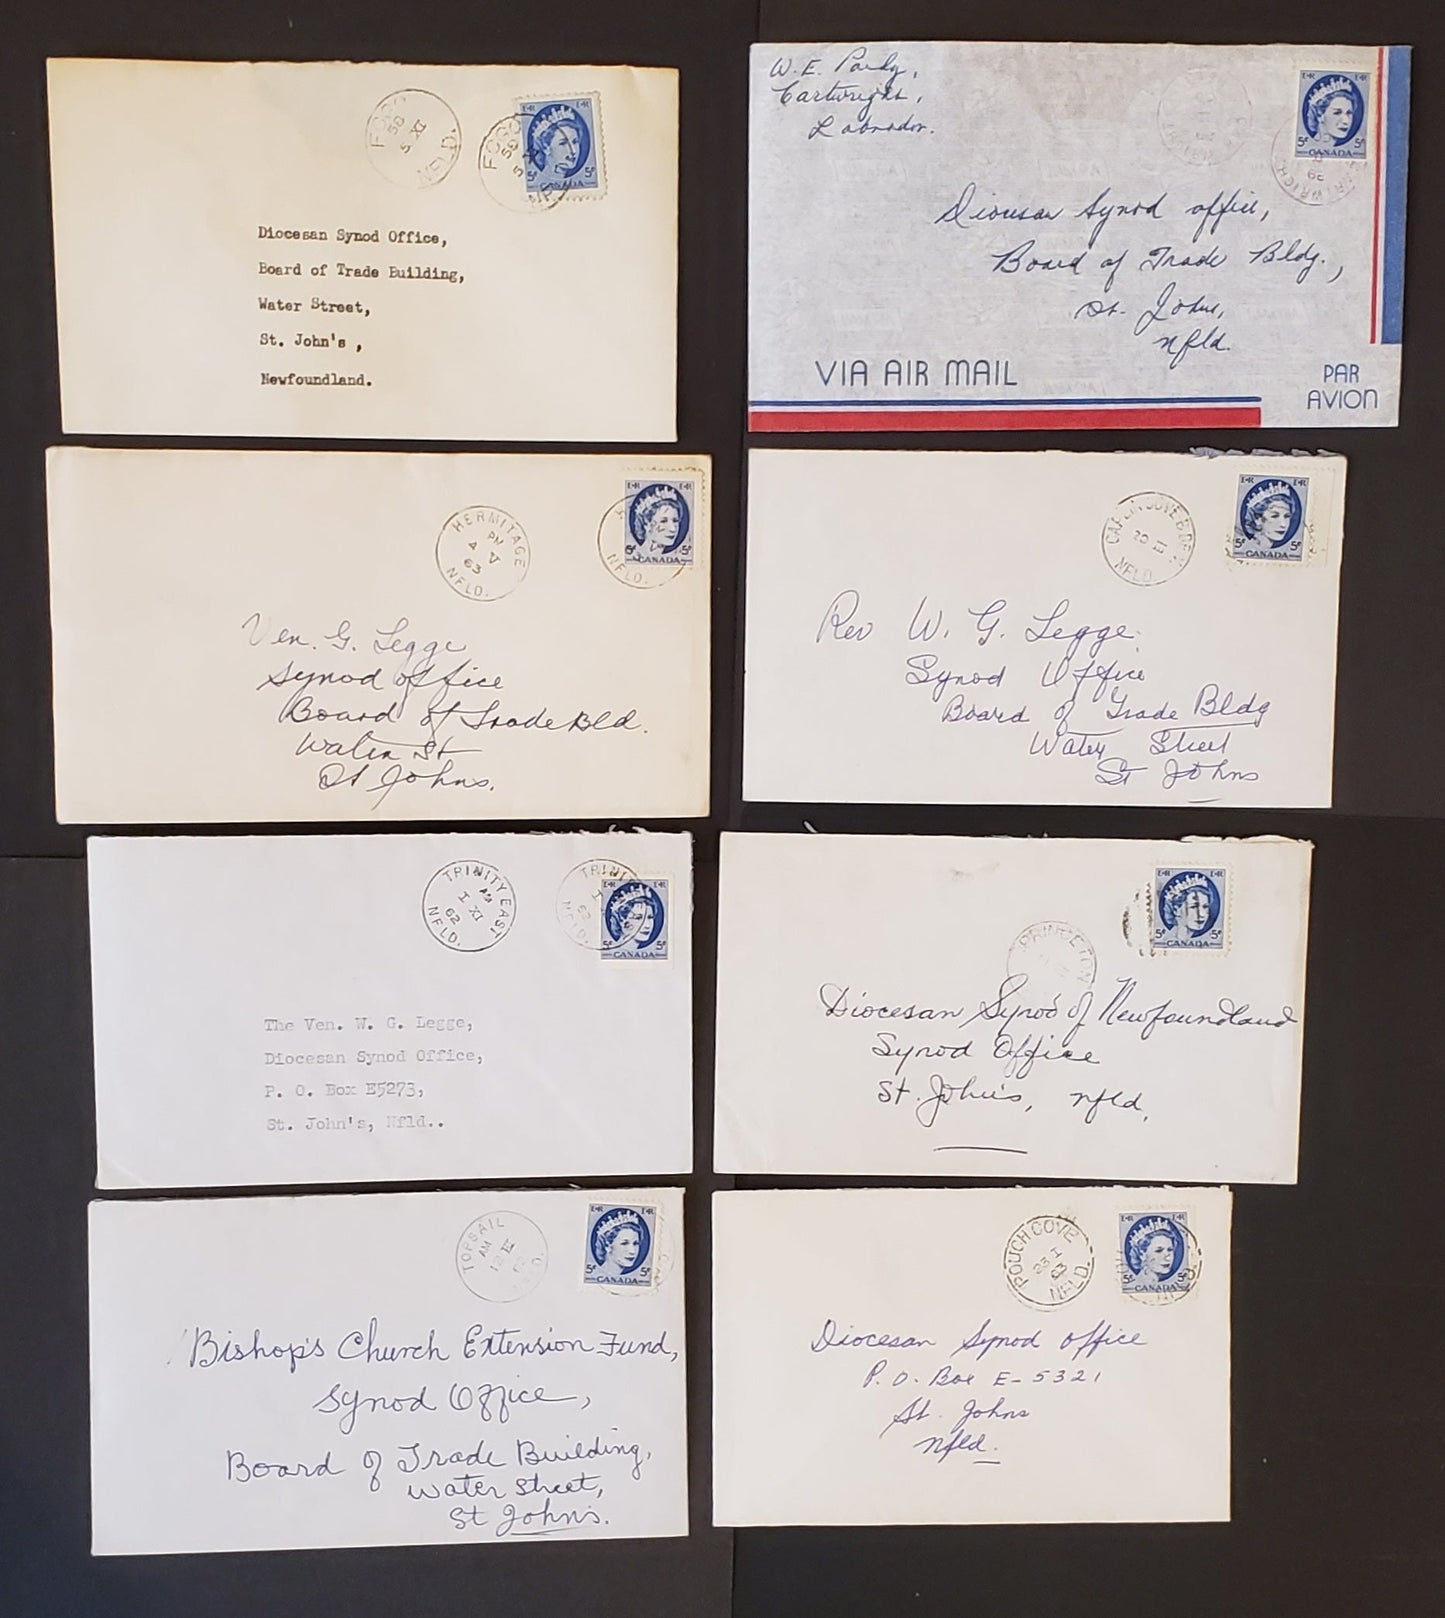 FOGO
5 XI
58
NFLD.
FOGO
5 XI
E·R E·R
5¢ 5¢
CANADA
Diocesan Synod Office,
Board of Trade Building,
Water Street,
St. John's ,
Newfoundland.
Cartwright,
Labrador.
E·R E·R
5¢ 5¢
CANADA
Diocesan Synod office,
Board of Trade Bldg.,
St. Johns,
nfld.
VIA AIR MAIL
PAR
AVION
HERMITAGE
PM
4 V
63
NFLD.
NFLD.
5¢
CANADA
Ven. G. Legge
Synod office
Board of Trade Bld.
Water St
St Johns.
20
NFLD.
E·R E·R
5¢ 5¢
CANADA
Rev W. G. Legge.
Synod Office
Board of Trade Bldg
Water Street
St Johns
TRINITY EAST
AM
I XI
62
NFLD.
62
NFLD.
E·R E·R
5¢ 5¢
CANADA
The Ven. W. G. Legge,
Diocesan Synod Office,
P. O. Box E5273,
St. John's, Nfld..
PRINCETON
E·R E·R
5¢ 5¢
CANADA
Diocesan Synod of Newfoundland
Synod Office
St. John's, nfld.
TOPSAIL
AM
12
E·R E·R
5¢ 5¢
CANADA
Bishop's Church Extension Fund,
Synod Office,
Board of Trade Building,
Water Street,
St Johns.
POUCH COVE
23 I
63
NFLD.
E·R E·R
5¢ 5¢
CANADA
Diocesan Synod office
P. O. Box E-5321
St. Johns
nfld.